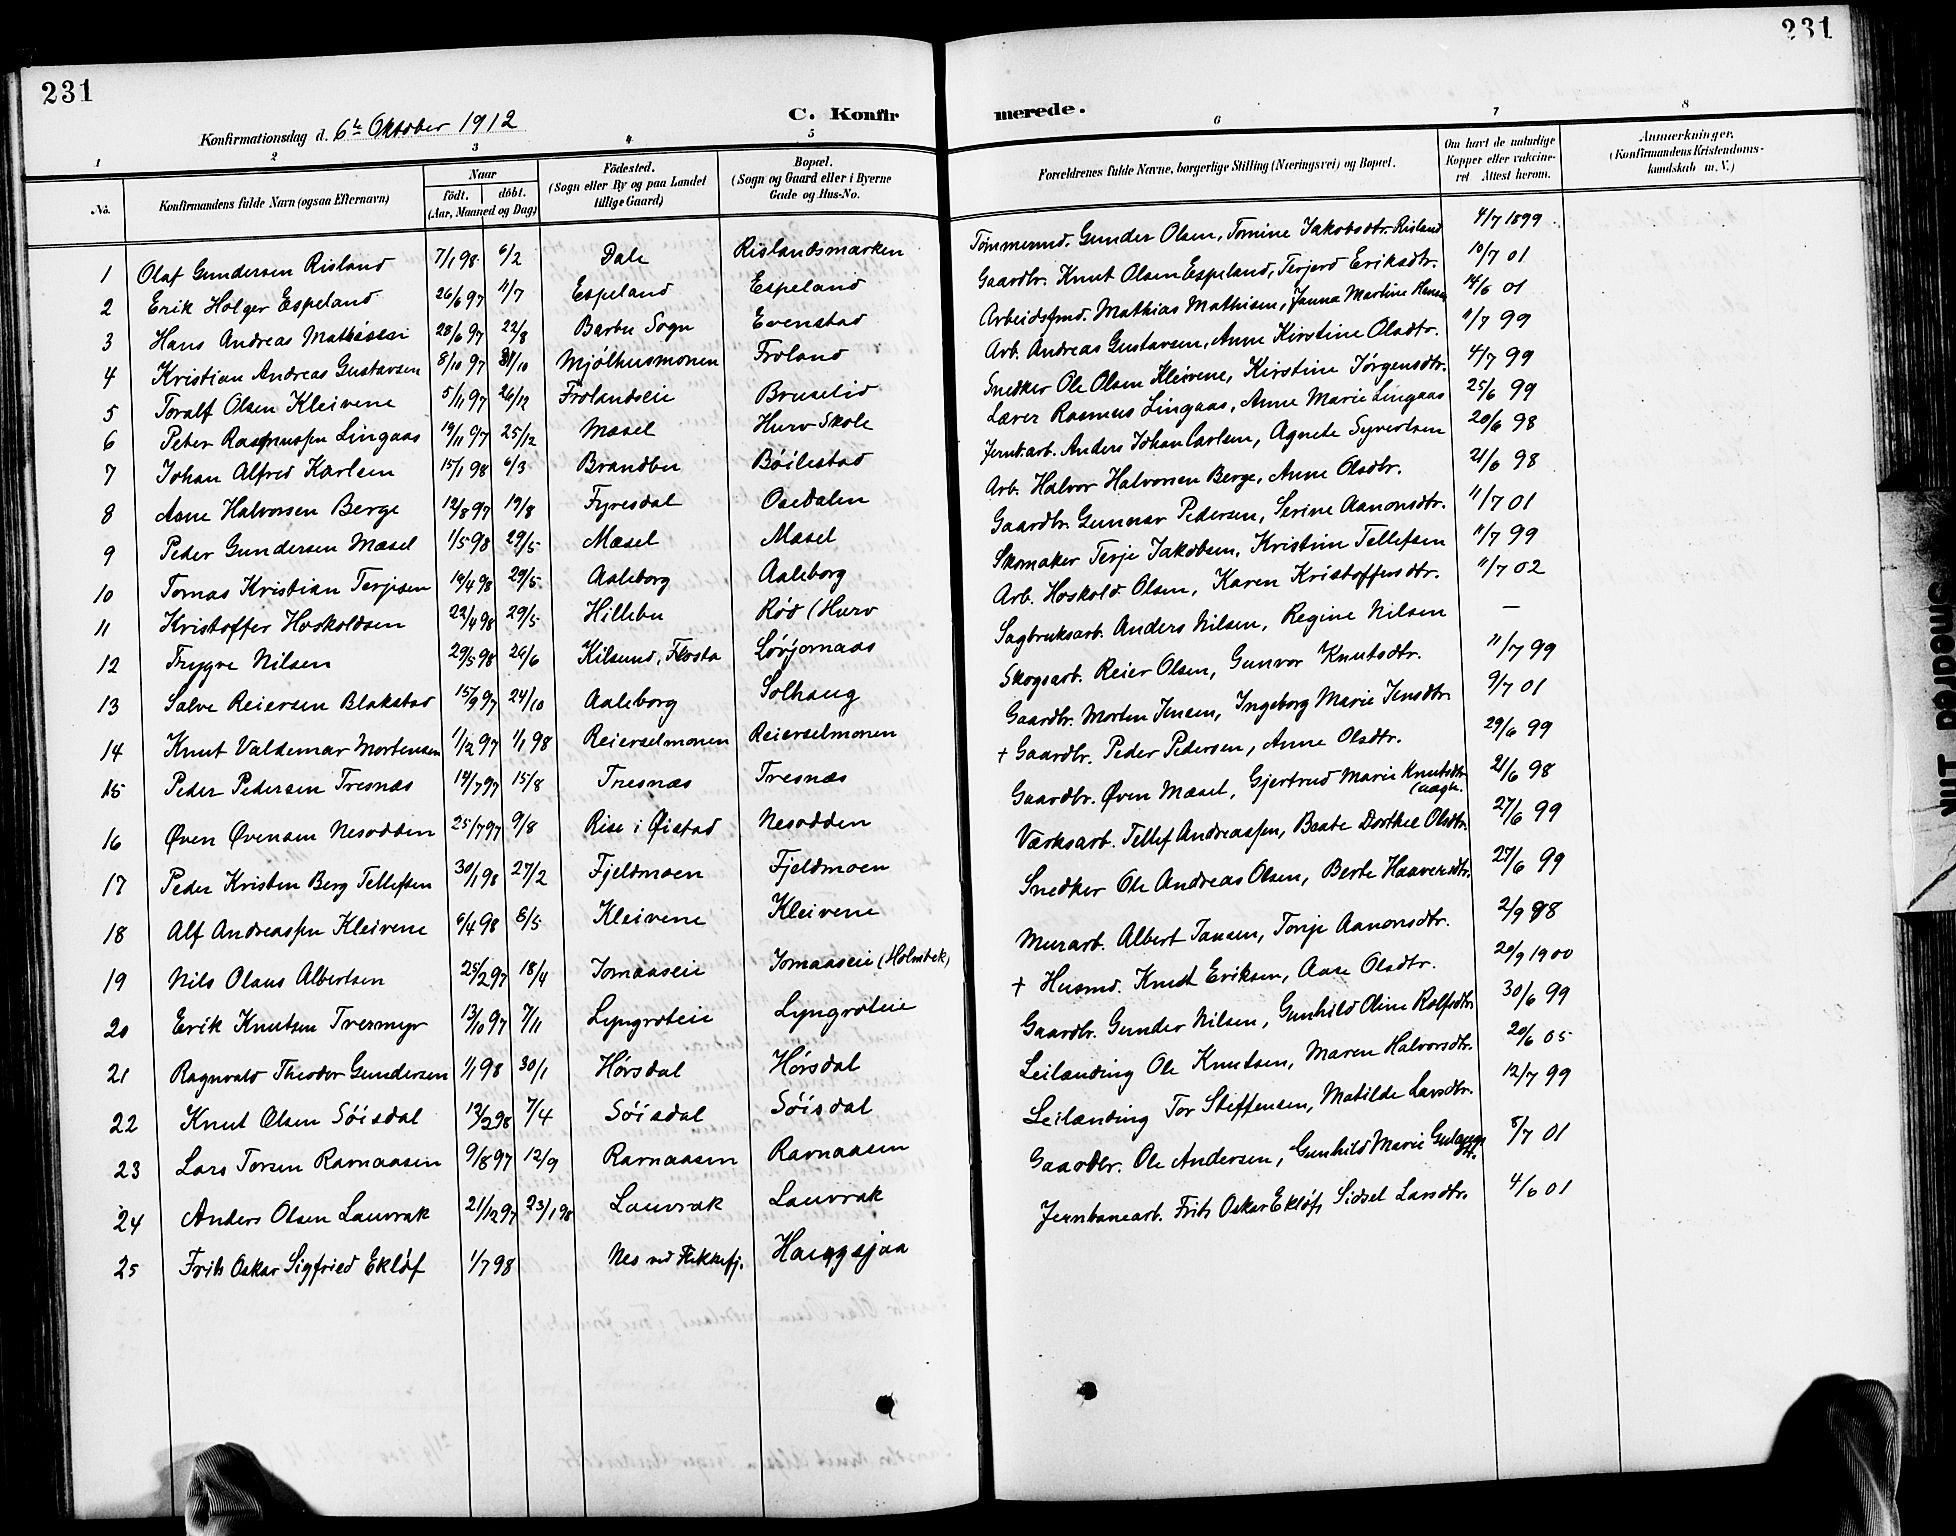 231
231
Konfirmationsdag d. 6te Oktober 1912
C. Konfir
merede.
1 2 3 4 5 6 7 8
No.
Konfirmandens fulde Navn (ogsaa Efternavn)
Naar
født. døbt.
(Aar, Maaned og Dag)
Födested.
(Sogn eller By og paa Landet
tillige Gaard)
Bopæl.
(Sogn og Gaard eller i Byerne
Gade og Hus-No.
Forældrenes fulde Navne, borgerlige Stilling (Næringsvei) og Bopæl.
Om havt de naturlige
Kopper eller vakcine-
ret Attest herom.
Anmerkninger.
(Konfirmandens Kristendoms-
kundskab m. V.)
1 Olaf Gundersen Risland 7/1 98 6/2 Dale Rislandsmarken Tømmermd. Gunder Olsen, Tomine Jakobsdtr. Risland 4/7 1899
2 Erik Holger Espeland 26/6 97 11/7 Espeland Espeland Gaardbr. Knut Olsen Espeland, Terjerd Eriksdtr. 10/7 01
3 Hans Andreas Mathisen 28/6 97 22/8 Barbu Sogn Evenstad Arbeidsfmd. Mathias Mathisen, Janna Martine Hansen 14/6 01
4 Kristian Andreas Gustavsen 8/10 97 31/10 Mjølhusmonen Froland Arb. Andreas Gustavsen, Anne Kirstine Olsdtr. 1/7 99
5 Toralf Olsen Kleivene 5/11 97 26/12 Frolandseie Bruselid Snedker Ole Olsen Kleivene, Kirstine Jørgensdtr. 4/7 99
6 Peter Rasmussen Lingaas 19/11 97 25/12 Mæsel Hurv Skole Lærer Rasmus Lingaas, Anne Marie Lingaas 25/6 99
7 Johan Alfred Karlsen 15/1 98 6/3 Brandbu Böilestad Jernb.arb. Anders Johan Carlsen, Agnete Syvertsen 20/6 98
8 Aane Halvorsen Berge 12/8 97 19/8 Fyresdal Osedalen Arb. Halvor Halvorsen Berge, Anne Olsdtr. 21/6 98
9 Peder Gundersen Mæsel 1/5 98 29/5 Mæsel Mæsel Gaardbr. Gunnar Pedersen, Serine Aanonsdtr. 11/7 01
10 Tomas Kristian Terjesen 19/4 98 29/5 Aaleborg Aaleborg Skomaker Terje Jakobsen, Kristine Tellefsen 11/7 99
11 Kristoffer Hoskoldsen 22/4 98 29/5 Hillebu Rød (Hurv Arb. Hoskold Olsen, Karen Kristoffersdtr. 11/7 02
12 Trygve Nilsen 29/5 98 26/6 Kilsund, Flosta Løvjomaas Sagbruksarb. Anders Nilsen, Regine Nilsen —
13 Salve Reiersen Blakstad 15/9 97 24/10 Aaleborg Solhaug Skogsarb. Reier Olsen, Gunvor Knutsdtr. 11/7 99
14 Knut Valdemar Mortensen 1/12 97 1/1 98 Reierselmonen Reierselmonen Gaardbr. Morten Jensen, Ingeborg Marie Jensdtr. 9/7 01
15 Peder Pedersen Tresnæs 14/7 97 15/8 Tresnæs Tresnæs + Gaardbr. Peder Pedersen, Anne Olsdtr. 29/6 99
16 Øven Øvensen Nesodden 25/7 97 9/8 Rise i Øistad Nesodden Gaardbr. Øven Mæsel, Gjertrud Marie Knutsdtr. (uægte. 21/6 98
17 Peder Kristen Berg Tellefsen 30/1 98 27/2 Fjeldmoen Fjeldmoen Værksarb. Tellef Andreassen, Beate Dorthee Olsdtr. 27/6 99
18 Alf Andreassen Kleivene 6/4 98 8/5 Kleivene Kleivene Snedker Ole Andreas Olsen, Berte Haaversdtr. 27/6 99
19 Nils Olaus Albertsen 25/2 97 18/4 Jomaaseie Jomaaseie (Holmbek) Murarb. Albert Jansen, Torje Aanonsdtr. 2/9 98
20 Erik Knutsen Tvermyr 13/10 97 7/11 Lyngroteie Lyngroteie + Husmd. Knut Eriksen, Aase Olsdtr. 20/9 1900
21 Ragnvald Theodor Gundersen 1/1 98 30/1 Hørsdal Hørsdal Gaardbr. Gunder Nilsen, Gunhild Oline Rolfsdtr. 30/6 99
22 Knut Olsen Søisdal 13/2 98 7/4 Søisdal Søisdal Leilending Ole Knutsen, Maren Halvorsdtr. 20/6 05
23 Lars Torsen Ravnaasen 9/8 97 12/9 Ravnaasen Ravnaasen Leilending Tor Steffensen, Matilde Larsdtr. 12/7 99
24 Anders Olsen Lauvrak 21/12 97 23/1 98 Lauvrak Lauvrak Gaardbr. Ole Andersen, Gunhild Marie 8/7 01
25 Frits Oskar Sigfried Ekløf 1/7 98 Nes ved Flikkefj. Haugsjaa Jernbanearb. Frits Oskar Ekløf, Sidsel Larsdtr. 4/6 01